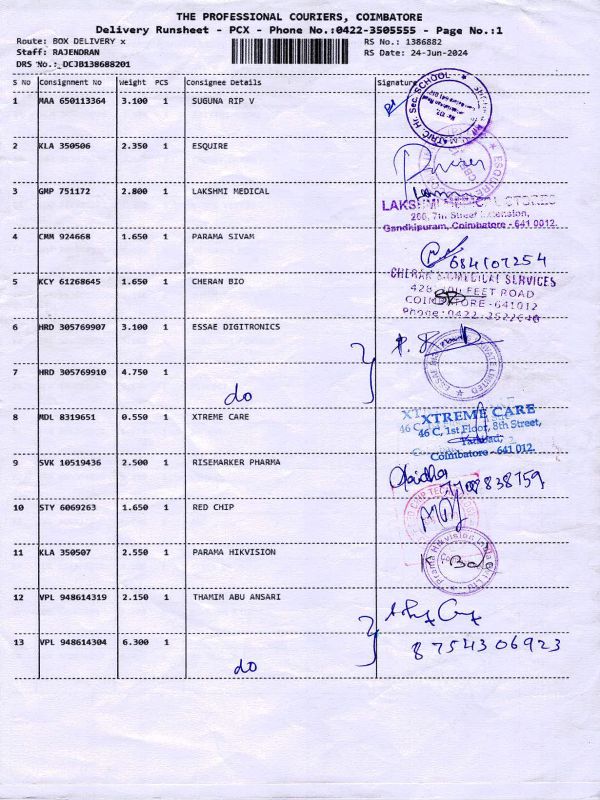 THE PROFESSIONAL COURIERS, COIMBATORE
Delivery Runsheet - PCX - Phone No.:0422-3505555 - Page No.:1
Route: BOX DELIVERY x RS No.: 1386882
Staff: RAJENDRAN RS Date: 24-Jun-2024
DRS No.: DCJB138688201
S No Consignment No Weight PCS Consignee Details Signature
1 MAA 650113364 3.100 1 SUGUNA RIP V
SCHOOL
2 KLA 350506 2.350 1 ESQUIRE
3 GMP 751172 2.800 1 LAKSHMI MEDICAL
LAKSHMI MEDICAL STORES
200, 7th Street Extension,
Gandhipuram, Coimbatore - 641 0012.
4 CMM 924668 1.650 1 PARAMA SIVAM
684107254
5 KCY 61268645 1.650 1 CHERAN BIO
MEDICAL SERVICES
428, 100 FEET ROAD
COIMBATORE - 641012
6 HRD 305769907 3.100 1 ESSAE DIGITRONICS
7 HRD 305769910 4.750 1
do
8 MDL 8319651 0.550 1 XTREME CARE
XTREME CARE
46 C, 1st Floor, 8th Street,
Tatabad,
Coimbatore - 641 012.
9 SVK 10519436 2.500 1 RISEMARKER PHARMA
10 STY 6069263 1.650 1 RED CHIP
11 KLA 350507 2.550 1 PARAMA HIKVISION
12 VPL 948614319 2.150 1 THAMIM ABU ANSARI
13 VPL 948614304 6.300 1
8754306923
do